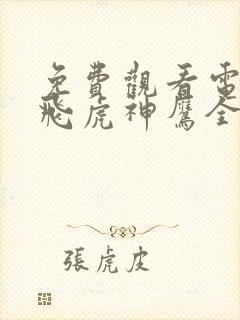 免費觀看電
飛虎神鷹全
張虎皮